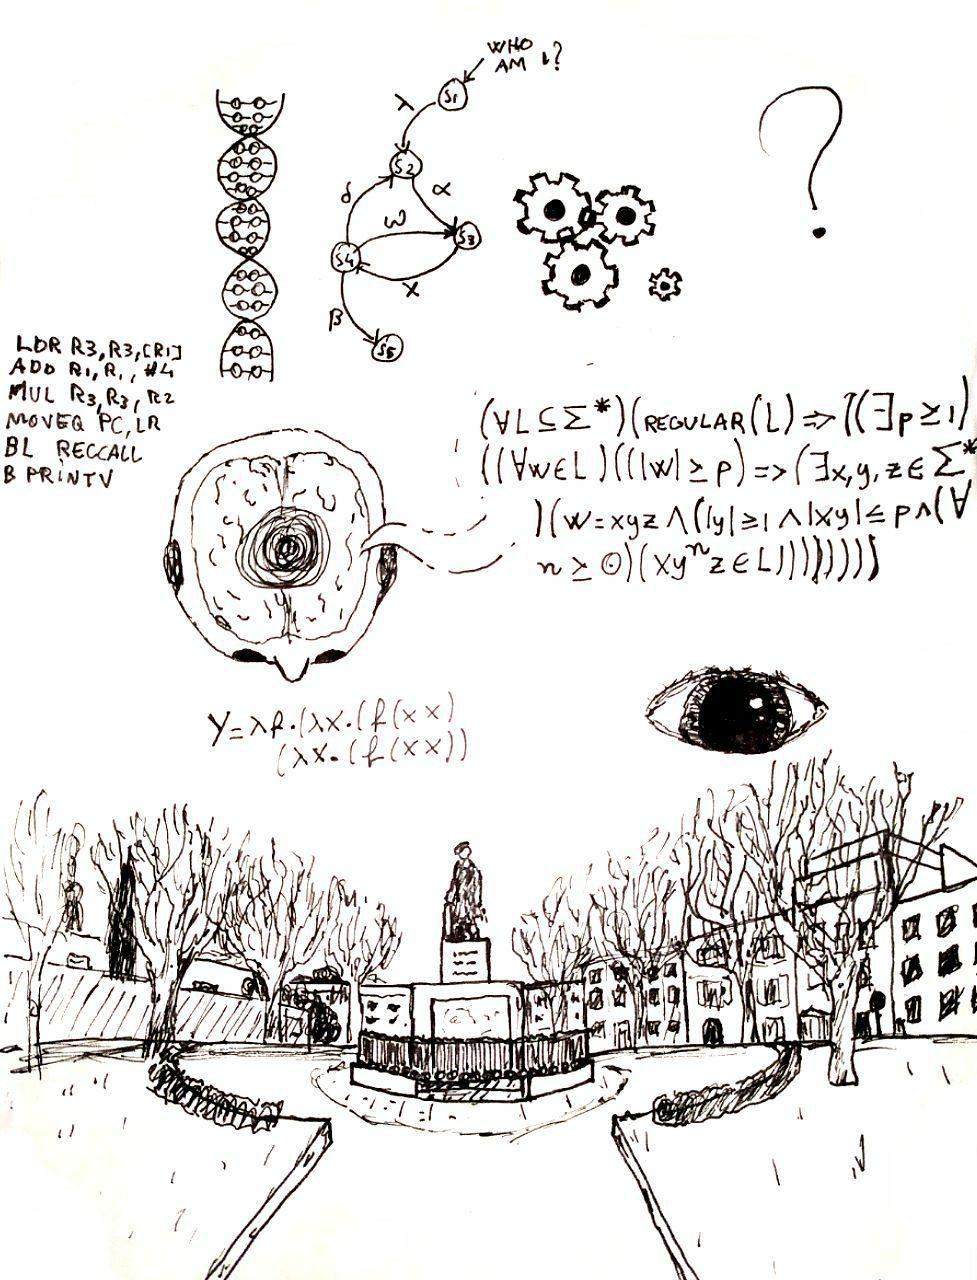 WHO
AM I?
S1
λ
S2
δ
α
W
S3
S4
X
β
S5
LDR R3,R3,[R1]
ADD R1,R1,#4
MUL R3,R3,R2
MOVEQ PC,LR
BL RECCALL
B PRINTV
(∀L⊆Σ*)(REGULAR(L)=>((∃p≥1)
((∀w∈L)((|w|≥p)=>(∃x,y,z∈Σ*
)(w=xyz∧(|y|≥1∧|xy|≤p∧(∀
n≥0)(xyⁿz∈L))))))))
Y=λf.(λx.(f(xx)
(λx.(f(xx))